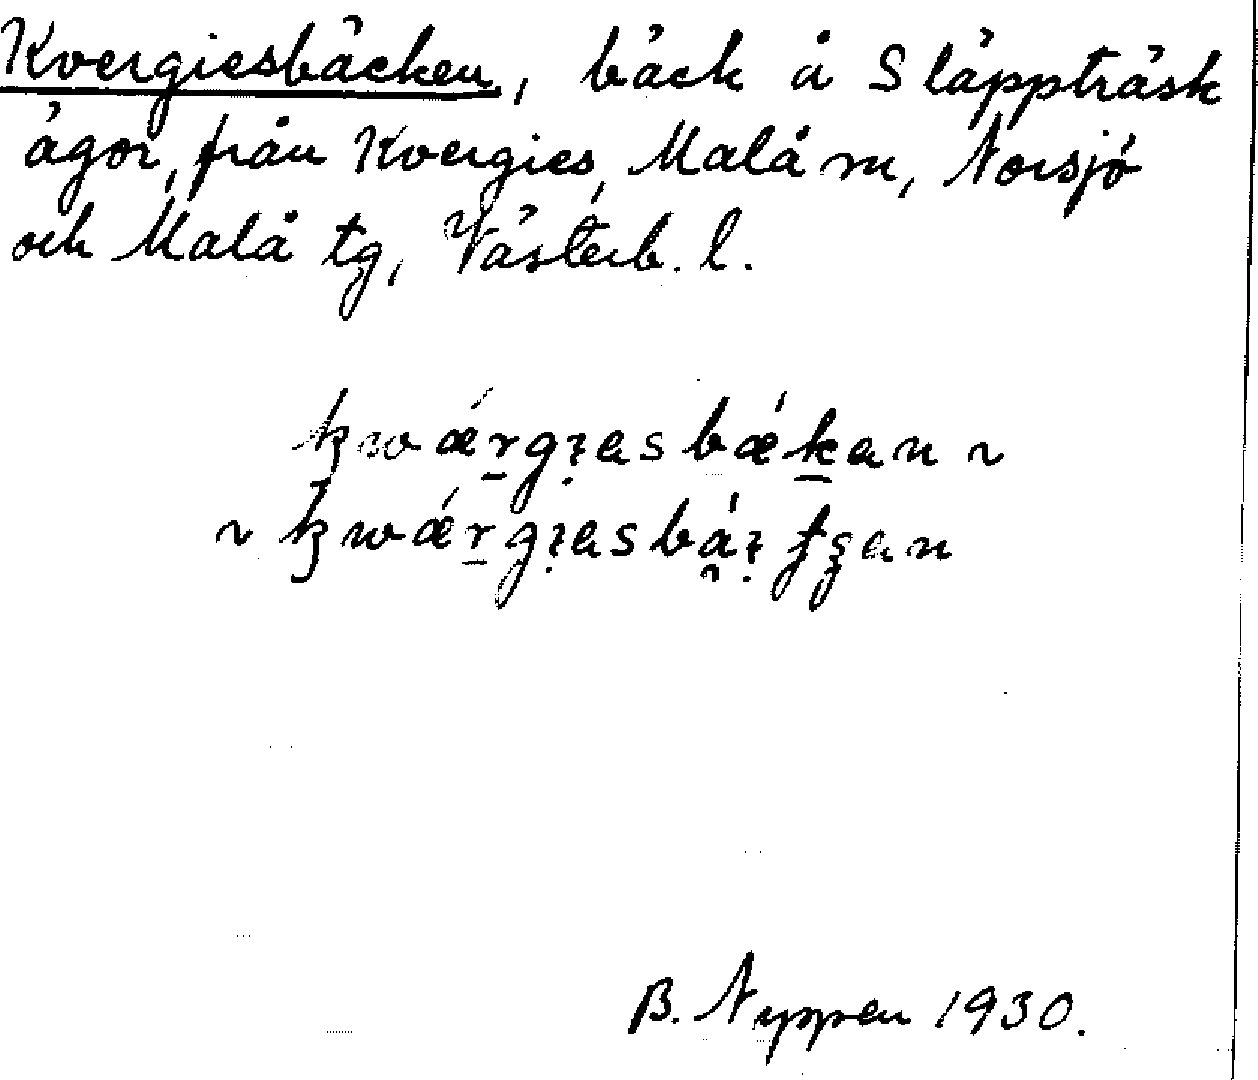 Kvergiesbäcken, bäck å Släppträsk
ägor, från Kvergies, Malå sn, Norsjö
och Malå tg, Västerb. l.
kwǽrgɩesbǽkan ~
~ kwǽrgɩesbáɩtʂan
B. Nyppen 1930.